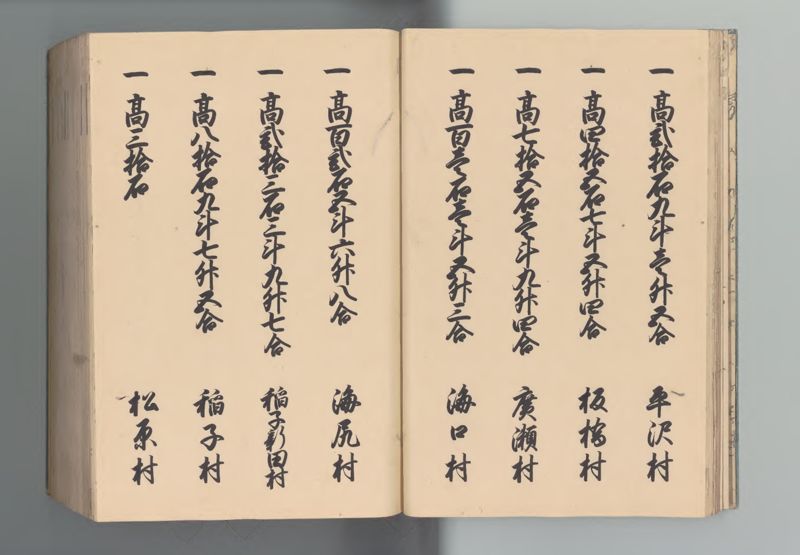 一 高弐拾石九斗壱升五合 平沢村
一 高四拾五石七斗五升四合 板橋村
一 高七拾五石壱斗九升四合 廣瀬村
一 高百壱石壱斗五升三合 海口村
一 高百弐石五斗六升八合 海尻村
一 高弐拾三石三斗九升七合 稲子新田村
一 高八拾石九斗七升五合 稲子村
一 高三拾石 松原村